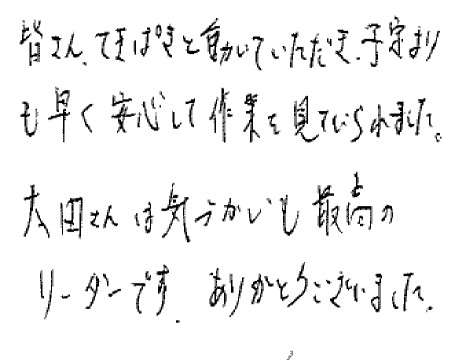 皆さん、てきぱきと動いていただき、予定より
も早く安心して作業を見ていられました。
太田さんは気づかいも最高の
リーダーです。ありがとうございました。